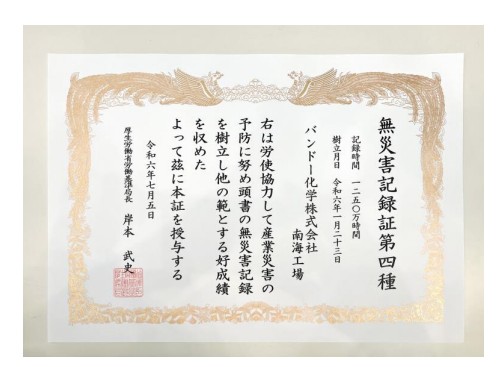 無災害記録証第四種
記録時間 一二五〇万時間
樹立月日 令和六年一月二十三日
バンドー化学株式会社
南海工場
右は労使協力して産業災害の
予防に努め頭書の無災害記録
を樹立し他の範とする好成績
を収めた
よって茲に本証を授与する
令和六年七月五日
厚生労働省労働基準局長 岸本 武史